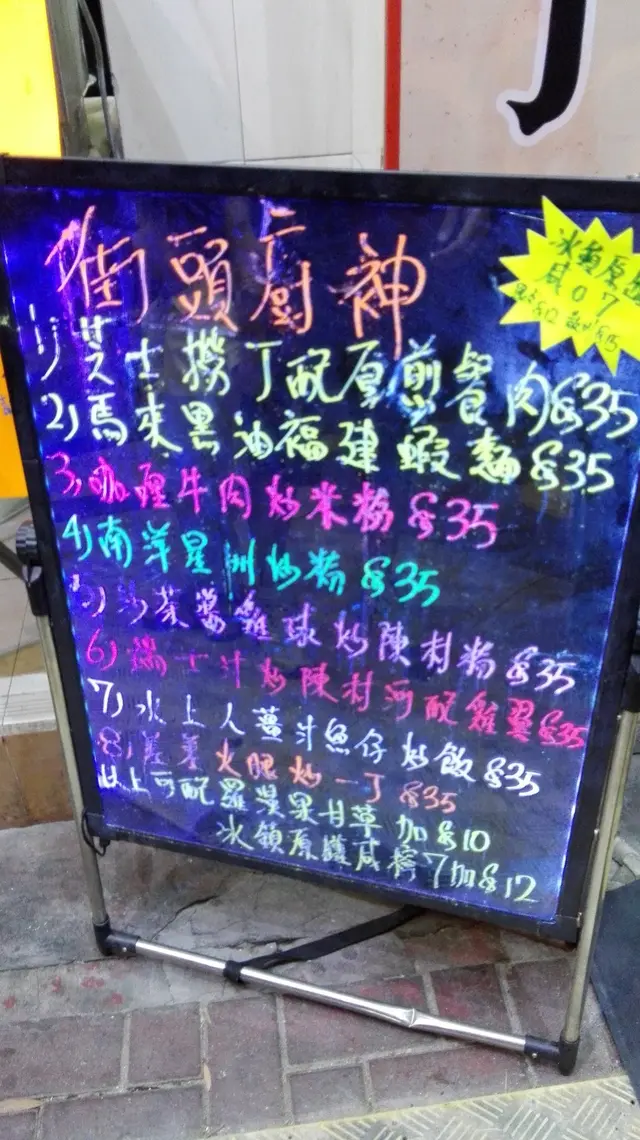 街頭廚神
冰鎮原
咸07
1)芝士撈丁配厚煎餐肉&35
2)馬來黑油福建蝦麵&35
3)咖喱牛肉炒米粉&35
4)南洋星洲炒粉&35
5)沙茶醬雞球炒陳村粉&35
6)瑞士汁炒陳村河配雞翼&35
7)水上人薑汁魚仔炒飯&35
8)火腿炒一丁&35
以上可配羅漢果甘草加&10
冰鎮原罐咸檸7加&12